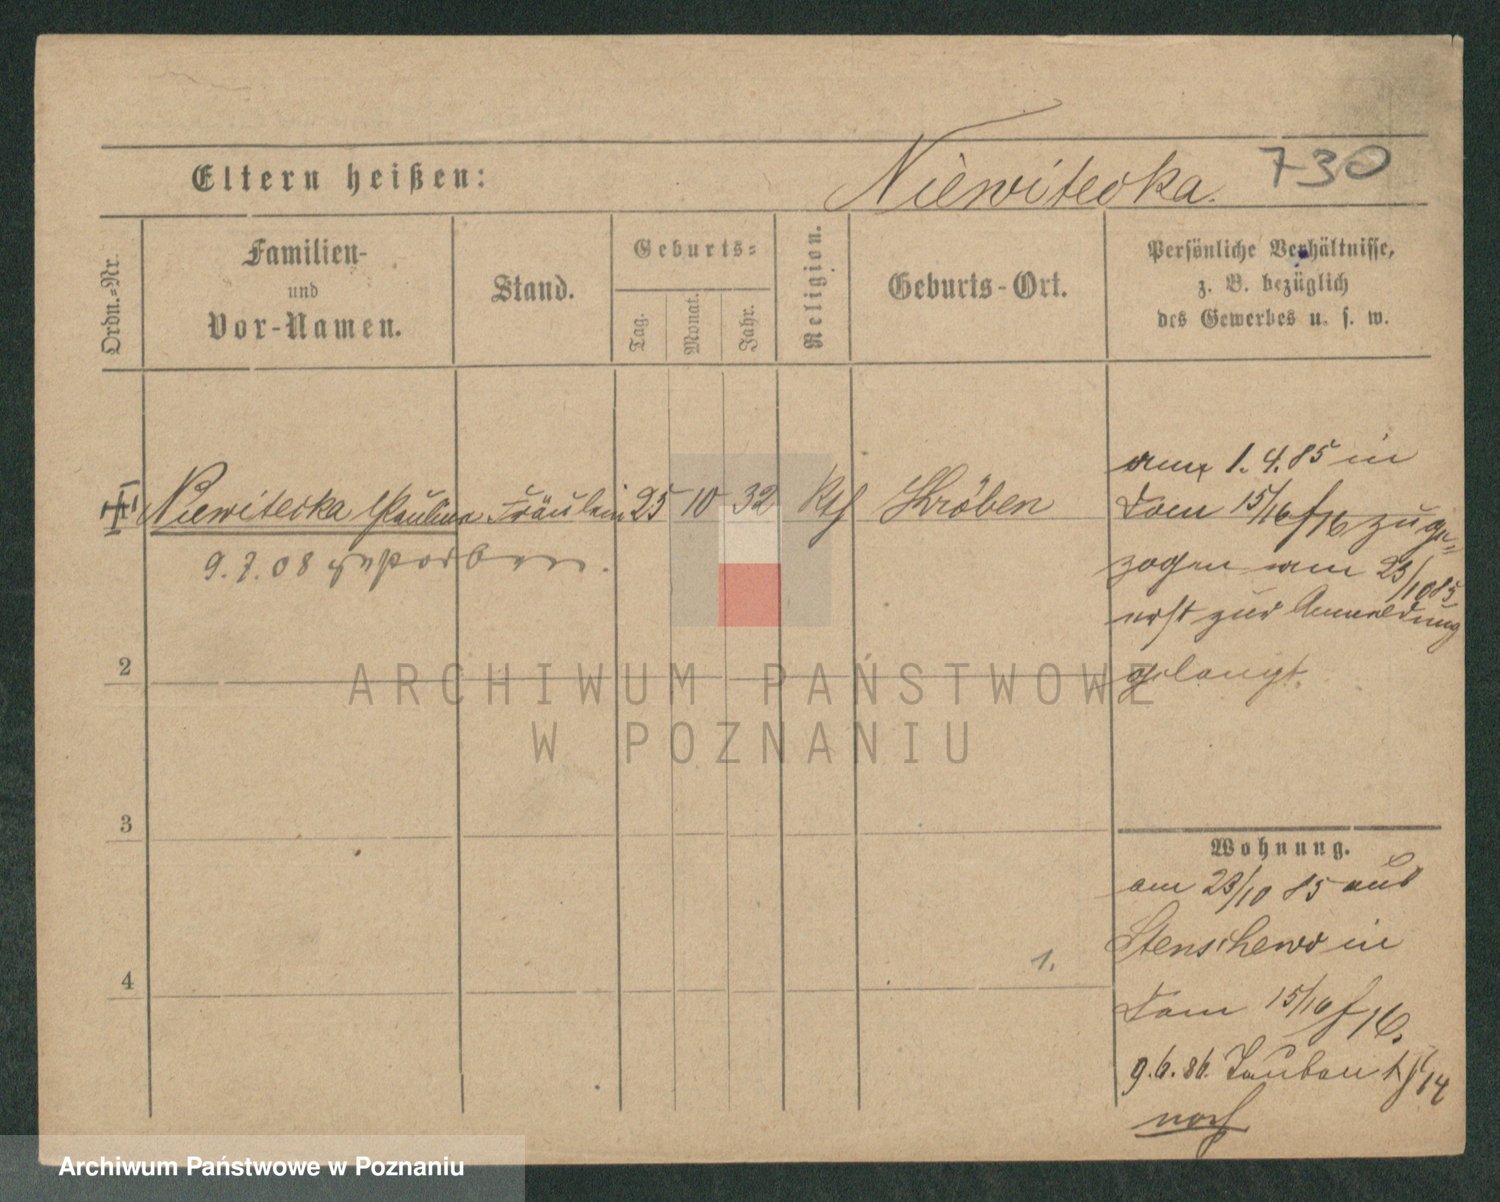 Eltern heißen: Niewitecka. 730
Ordn.-Nr.
Familien-
und
Vor-Namen.
Stand.
Geburts-
Tag.
Monat.
Jahr.
Religion.
Geburts-Ort.
Persönliche Verhältnisse,
z. B. bezüglich
des Gewerbes u. s. w.
Niewitecka Paulina Fräulein 25 10 32 Kth Kröben
9.7.08 gestorben.
am 1.4.85 in
Dom 15/16 f 16 zuge=
zogen am 23/10 85
erst zur Anmeldung
gelangt.
2
3
4
1.
Wohnung.
am 23/10 85 aus
Stenschewo in
Dom 15/16 f 16.
9.6.86. Taubenst 14
ARCHIWUM PAŃSTWOWE
W POZNANIU
Archiwum Państwowe w Poznaniu